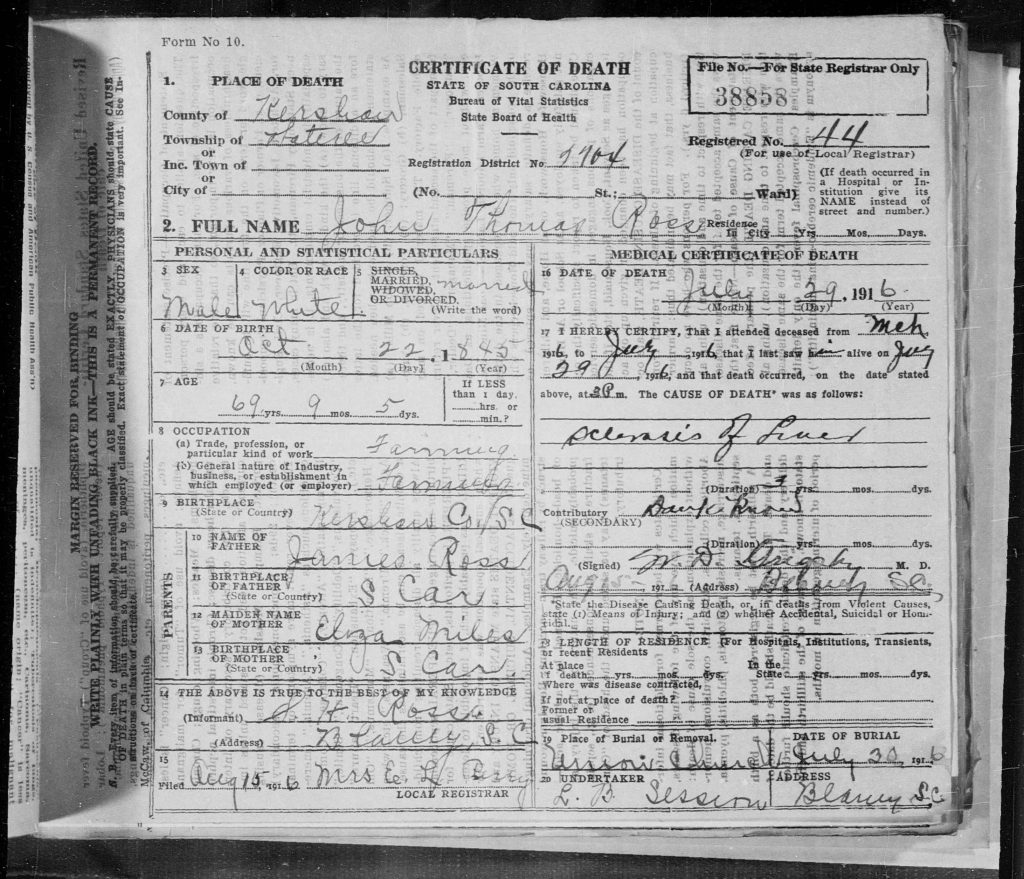 Form No 10.
1. PLACE OF DEATH
County of Kershaw
Township of Wateree
or
Inc. Town of
or
City of
CERTIFICATE OF DEATH
STATE OF SOUTH CAROLINA
Bureau of Vital Statistics
State Board of Health
Registration District No. 2704
(No. St.; Ward)
File No.—For State Registrar Only
38858
Registered No. 44
(For use of Local Registrar)
(If death occurred in
a Hospital or In-
stitution give its
NAME instead of
street and number.)
2. FULL NAME John Thomas Ross
Residence
In City Yrs. Mos. Days.
PERSONAL AND STATISTICAL PARTICULARS
3 SEX
Male
4 COLOR OR RACE
White
5 SINGLE,
MARRIED,
WIDOWED,
OR DIVORCED.
married
(Write the word)
6 DATE OF BIRTH
Oct 22, 1845
(Month) (Day) (Year)
7 AGE
69 yrs. 9 mos. 5 dys.
If LESS
than 1 day.
hrs. or
min.?
8 OCCUPATION
(a) Trade, profession, or
particular kind of work Farming
(b) General nature of Industry,
business, or establishment in
which employed (or employer) Farming
9 BIRTHPLACE
(State or Country) Kershaw Co. S C
PARENTS
10 NAME OF
FATHER James Ross
11 BIRTHPLACE
OF FATHER
(State or Country) S Car.
12 MAIDEN NAME
OF MOTHER Eliza Miles
13 BIRTHPLACE
OF MOTHER
(State or Country) S Car.
14 THE ABOVE IS TRUE TO THE BEST OF MY KNOWLEDGE
(Informant) S. H. Ross
(Address) Blaney, S. C
15
Filed Aug 15, 1916 Mrs E.
LOCAL REGISTRAR
MEDICAL CERTIFICATE OF DEATH
16 DATE OF DEATH
July 29, 1916.
(Month) (Day) (Year)
17 I HEREBY CERTIFY, That I attended deceased from Mch
1916, to July, 1916, that I last saw him alive on July
29, 1916, and that death occurred, on the date stated
above, at 3 P m. The CAUSE OF DEATH* was as follows:
Sclerosis of Liver
(Duration) yrs. mos. dys.
Contributory Don't Know
(SECONDARY)
(Duration) yrs. mos. dys.
(Signed) W. D. Grigsby M. D.
Aug, 191 (Address) Blaney S.C,
*State the Disease Causing Death, or, in deaths from Violent Causes,
state (1) Means of Injury; and (2) whether Accidental, Suicidal or Homi-
cidal.
18 LENGTH OF RESIDENCE (For Hospitals, Institutions, Transients,
or recent Residents
At place In the
of death yrs. mos. dys. State yrs. mos. dys.
Where was disease contracted,
If not at place of death?
Former or
usual Residence
19 Place of Burial or Removal. DATE OF BURIAL
Union July 30, 1916
20 UNDERTAKER ADDRESS
L. B. Session Blaney S.C.
MARGIN RESERVED FOR BINDING
WRITE PLAINLY WITH UNFADING BLACK INK—THIS IS A PERMANENT RECORD.
B.—Every item of information should be carefully supplied. AGE should be stated EXACTLY. PHYSICIANS should state CAUSE
OF DEATH in plain terms so that it may be properly classified. Exact statement of OCCUPATION is very important. (See In-
structions on back of Certificate.
McCaw, of Columbia